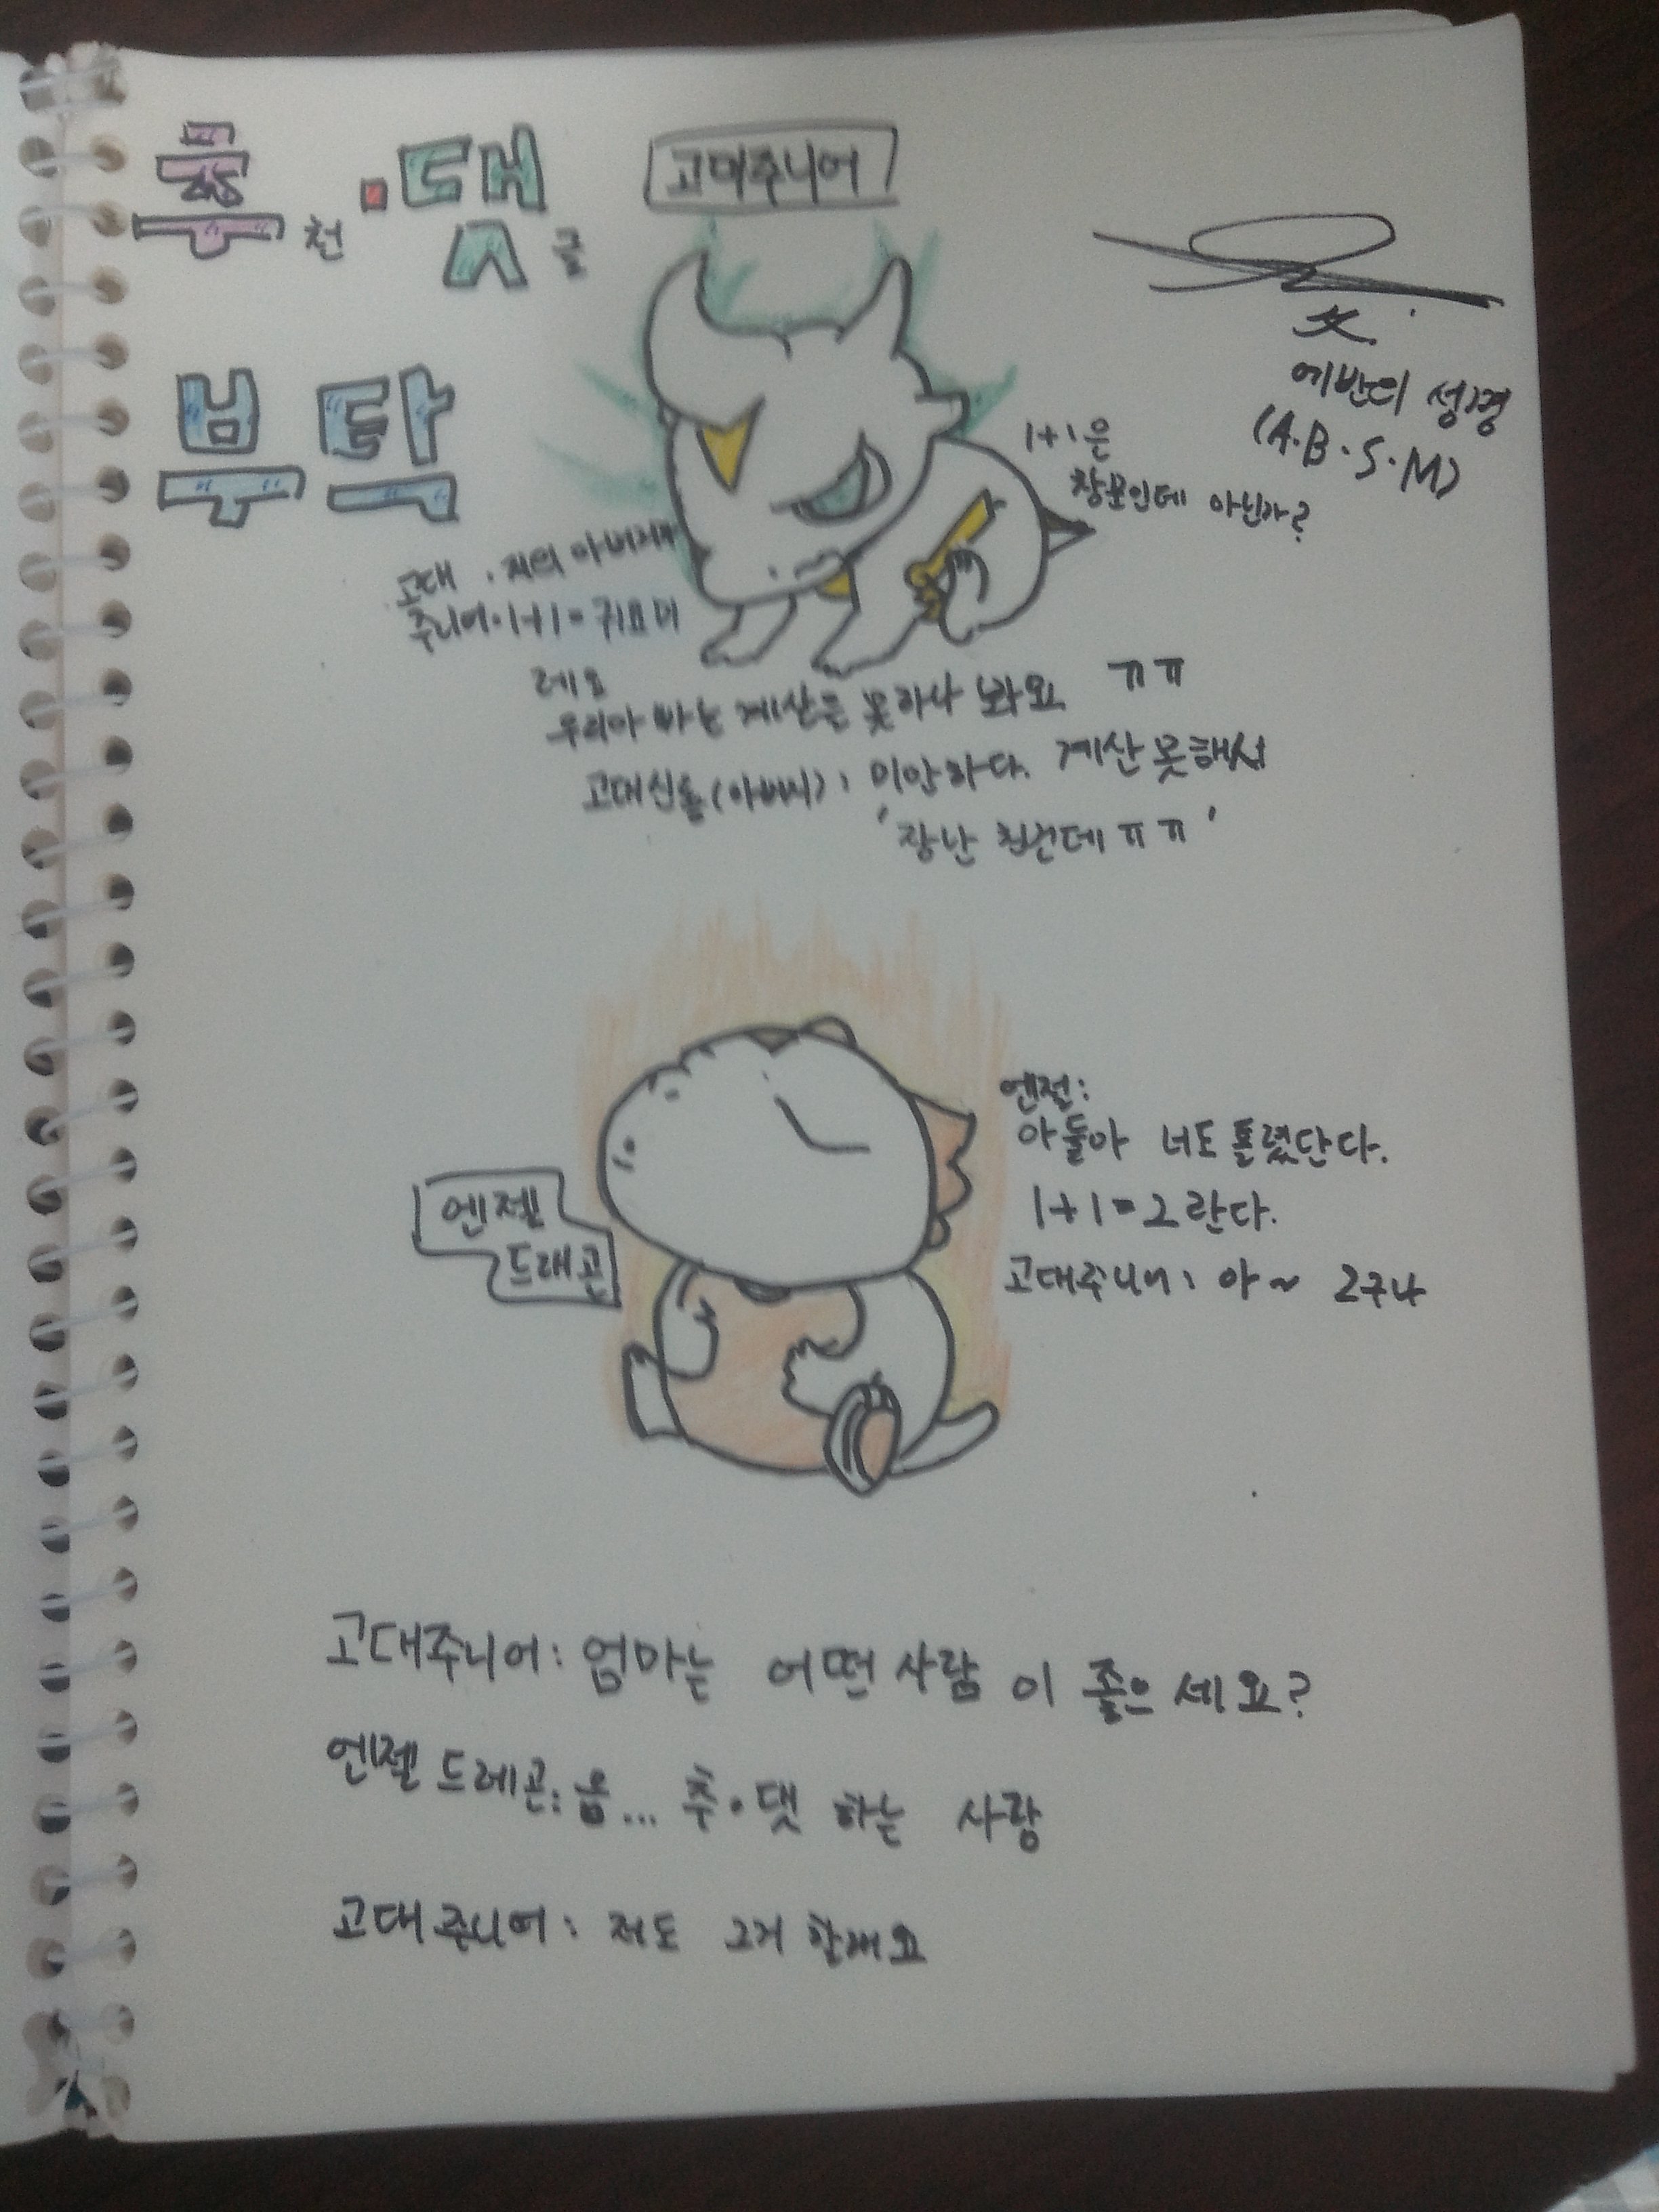 추천·댓글
부탁
고대주니어
에반의 성경
(A.B.S.M)
1+1은
창문인데 아닌가?
고대 저의 아버지가
주니어. 1+1=귀요미
레요
우리아빠는 계산은 못하나 봐요 ㅠㅠ
고대신룡(아버지): 미안하다. 계산못해서
'장난 친건데ㅠㅠ'
엔젤:
아들아 너도 틀렸단다.
1+1=2란다.
고대주니어: 아~ 2구나
엔젤
드래곤
고대주니어: 엄마는 어떤 사람이 좋으세요?
엔젤드레곤: 음... 추·댓 하는 사람
고대주니어: 저도 그거 할래요